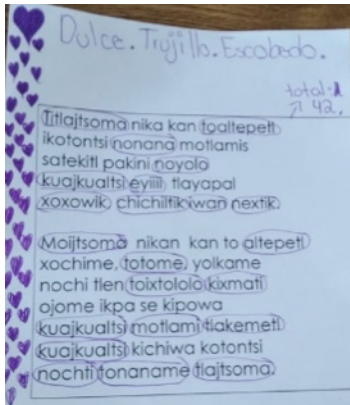 Dulce. Trujillo. Escobedo.
total
42.
Titlajtsoma nika kan toaltepetl
ikotontsi nonana motlamis
satekitl pakini noyolo
kuajkualtsi eyiiil tlayapal
xoxowik chichiltik iwan nextik.
Moijtsoma nikan kan to altepetl
xochime, totome, yolkame
nochi tlen toixtololo kixmati
ojome ikpa se kipowa
kuajkualtsi motlami tlakemetl
kuajkualtsi kichiwa kotontsi
nochti tonaname tlajtsoma.